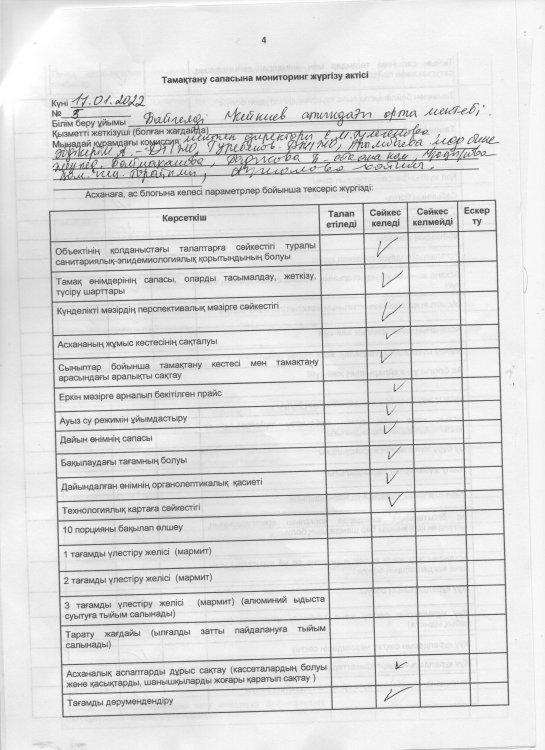 4
Тамақтану сапасына мониторинг жүргізу актісі
Күні 17.01.2022
№ 5
Білім беру ұйымы Байтелді Мейкиев атындағы орта мектебі;
Қызметті жеткізуші (болған жағдайда)
Мынадай құрамдағы комиссия мектеп директоры
Асханаға, ас блогына келесі параметрлер бойынша тексеріс жүргізді:
Көрсеткіш Талап етіледі Сәйкес келеді Сәйкес келмейді Ескер ту
Объектінің қолданыстағы талаптарға сәйкестігі туралы
санитариялық-эпидемиологиялық қорытындының болуы ✓
Тамақ өнімдерінің сапасы, оларды тасымалдау, жеткізу,
түсіру шарттары ✓
Күнделікті мәзірдің перспективалық мәзірге сәйкестігі ✓
Асхананың жұмыс кестесінің сақталуы ✓
Сыныптар бойынша тамақтану кестесі мен тамақтану
арасындағы аралықты сақтау ✓
Еркін мәзірге арналып бекітілген прайс ✓
Ауыз су режимін ұйымдастыру ✓
Дайын өнімнің сапасы ✓
Бақылаудағы тағамның болуы ✓
Дайындалған өнімнің органолептикалық қасиеті ✓
Технологиялық картаға сәйкестігі ✓
10 порцияны бақылап өлшеу
1 тағамды үлестіру желісі (мармит)
2 тағамды үлестіру желісі (мармит)
3 тағамды үлестіру желісі (мармит) (алюминий ыдыста
суытуға тыйым салынады)
Тарату жағдайы (ылғалды затты пайдалануға тыйым
салынады)
Асханалық аспаптарды дұрыс сақтау (кассеталардың болуы
және қасықтарды, шанышқыларды жоғары қаратып сақтау ) ✓
Тағамды дәрумендендіру ✓